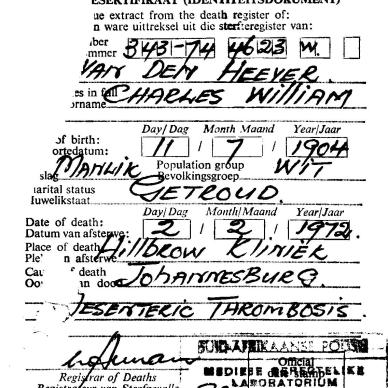 SERTIFIKAAT (IDENTITEITSDOKUMENT)
ue extract from the death register of:
n ware uittreksel uit die sterfteregister van:
ber
mmer 343-74 4623 W.
VAN DEN HEEVER.
es in full
orname CHARLES WILLIAM
Day/Dag Month Maand Year/Jaar
of birth:
ortedatum: 11 / 7 / 1904
slag MANLIK Population group
Bevolkingsgroep WIT
arital status
luwelikstaat GETROUD.
Day/Dag Month/Maand Year/Jaar
Date of death:
Datum van afsterwe: 2 / 2 / 1972.
Place of death
Ple n afsterwe Hillbrow KLINIEK
Cau f death
Oo an dood JOHANNESBURG.
ESENTERIC THROMBOSIS
SUID-AFRIKAANSE
Official
date stamp
MEDIESE GEREGTELIKE
LABORATORIUM
Registrar of Deaths